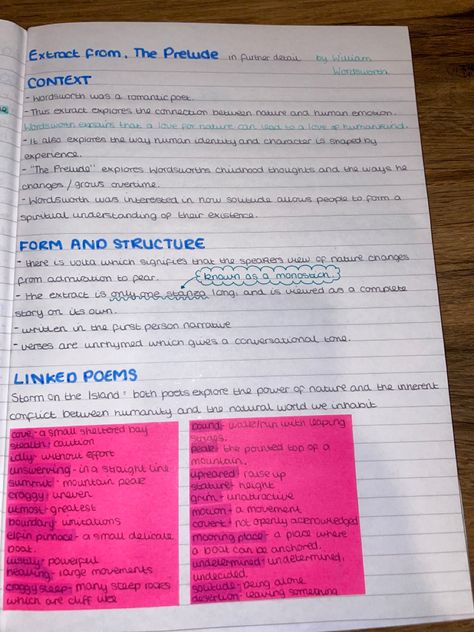 Extract from, The Prelude in further detail by William
Wordsworth
CONTEXT
- Wordsworth was a romantic poet.
- This extract explores the connection between nature and human emotion.
Wordsworth explains that a love for nature can lead to a love of humankind.
- It also explores the way human identity and character is shaped by
experience.
- "The Prelude" explores Wordsworths childhood thoughts and the ways he
changes / grows overtime.
- Wordsworth was interested in how solitude allows people to form a
spiritual understanding of their existence.
FORM AND STRUCTURE
- there is volta which signifies that the speakers view of nature changes
from admiration to fear.
known as a monostich.
- the extract is only one stanza long, and is viewed as a complete
story on its own.
- written in the first person narrative
- verses are unrhymed which gives a conversational tone.
LINKED POEMS
Storm on the Island: both poets explore the power of nature and the inherent
conflict between humanity and the natural world we inhabit
cove- a small sheltered bay
stealth- caution
idly- without effort
unswerving- in a straight line
summit- mountain peak
craggy- uneven
utmost- greatest
boundary- limitations
elfin pinnace- a small delicate
boat.
lustily- powerful
heaving- large movements
craggy steep- many steep rocks
which are cliff like
bound- walk/run with leaping
strides.
peak- the pointed top of a
mountain.
upreared- raise up
stature- height
grim- unattractive
motion- a movement
covert- not openly acknowledged
mooring place- a place where
a boat can be anchored.
undetermined- undetermined,
undecided.
solitude- being alone
desertion- leaving something